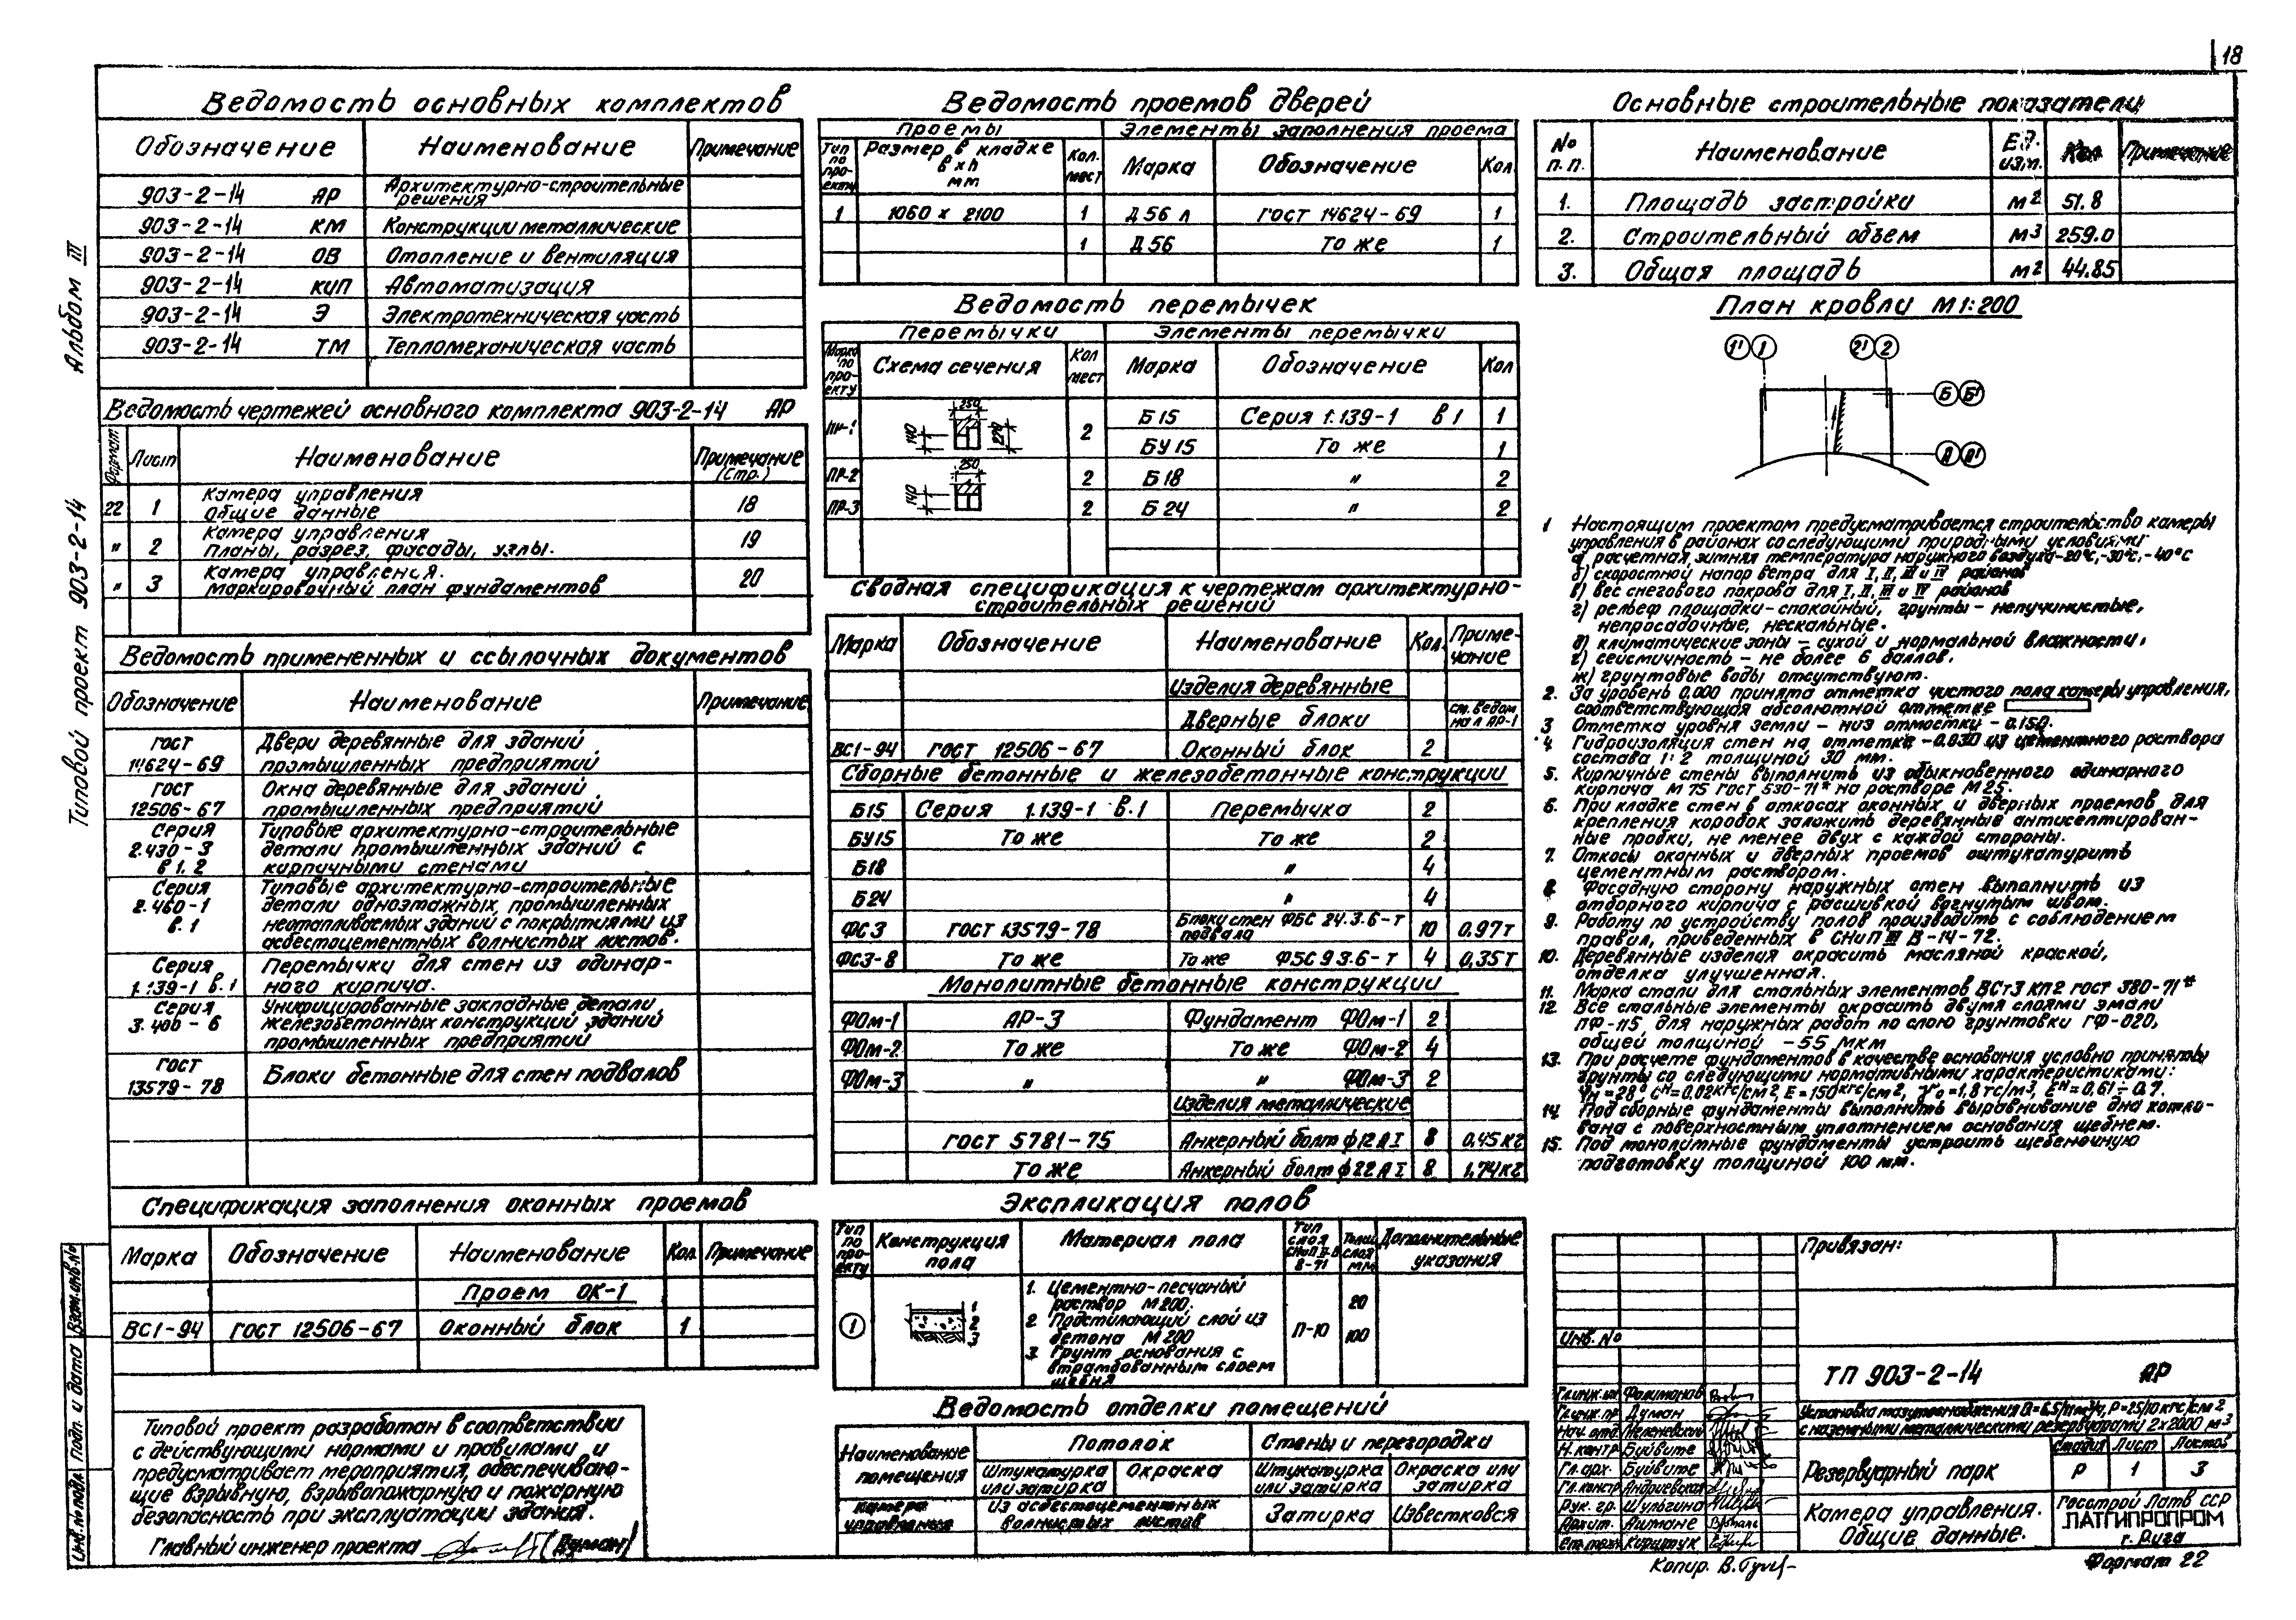 18
Альбом III
Типовой проект 903-2-14
Ведомость основных комплектов
Обозначение Наименование Примечание
903-2-14 АР Архитектурно-строительные решения
903-2-14 КМ Конструкции металлические
903-2-14 ОВ Отопление и вентиляция
903-2-14 КИП Автоматизация
903-2-14 Э Электротехническая часть
903-2-14 ТМ Тепломеханическая часть
Ведомость чертежей основного комплекта 903-2-14 АР
Формат Лист Наименование Примечание (Стр.)
22 1 Камера управления Общие данные 18
" 2 Камера управления Планы, разрез, фасады, узлы. 19
" 3 Камера управления. Маркировочный план фундаментов 20
Ведомость примененных и ссылочных документов
Обозначение Наименование Примечание
ГОСТ 14624-69 Двери деревянные для зданий промышленных предприятий
ГОСТ 12506-67 Окна деревянные для зданий промышленных предприятий
Серия 2.430-3 в 1. 2 Типовые архитектурно-строительные детали промышленных зданий с кирпичными стенами
Серия 2.460-1 в.1 Типовые архитектурно-строительные детали одноэтажных промышленных неотапливаемых зданий с покрытиями из асбестоцементных волнистых листов.
Серия 1.139-1 в.1 Перемычки для стен из одинарного кирпича.
Серия 3.400-6 Унифицированные закладные детали железобетонных конструкций зданий промышленных предприятий
ГОСТ 13579-78 Блоки бетонные для стен подвалов
Спецификация заполнения оконных проемов
Марка Обозначение Наименование Кол. Примечание
Проем ОК-1
ВС1-94 ГОСТ 12506-67 Оконный блок 1
Типовой проект разработан в соответствии
с действующими нормами и правилами и
предусматривает мероприятия, обеспечиваю-
щие взрывную, взрывопожарную и пожарную
безопасность при эксплуатации здания.
Главный инженер проекта (Думан)
Инв.№подл. Подп. и дата Взам.инв.№
Ведомость проемов дверей
Проемы Элементы заполнения проема
Тип по проекту Размер в кладке вхh мм Кол. мест Марка Обозначение Кол.
1 1060 х 2100 1 Д 56 л ГОСТ 14624-69 1
1 Д 56 То же 1
Ведомость перемычек
Перемычки Элементы перемычки
Марка по проекту Схема сечения Кол мест Марка Обозначение Кол
ПР-1 250 140 220 2 Б15 Серия 1.139-1 в 1 1
БУ 15 То же 1
ПР-2 250 140 2 Б18 " 2
ПР-3 2 Б 24 " 2
Сводная спецификация к чертежам архитектурно-
строительных решений
Марка Обозначение Наименование Кол. Примечание
Изделия деревянные
Дверные блоки см. ведом на л АР-1
ВС1-94 ГОСТ 12506-67 Оконный блок 2
Сборные бетонные и железобетонные конструкции
Б15 Серия 1.139-1 в.1 Перемычка 2
БУ15 То же То же 2
Б18 " 4
Б24 " 4
ФС3 ГОСТ 13579-78 Блоки стен подвала ФБС 24.3.6-т 10 0.97т
ФС3-8 То же То же ФБС 9 3.6-т 4 0,35т
Монолитные бетонные конструкции
ФОм-1 АР-3 Фундамент ФОм-1 2
ФОм-2 То же То же ФОм-2 4
ФОм-3 " " ФОм-3 2
Изделия металлические
ГОСТ 5781-75 Анкерный болт ф12 А I 8 0,45кг
То же Анкерный болт ф22 А I 8 1,74кг
Экспликация полов
Тип по проекту Конструкция пола Материал пола Тип слоя СНиП II-В 8-71 Толщ слоя мм Дополнительные указания
1 1 2 3
1. Цементно-песчаный раствор М200. 20
2 Подстилающий слой из бетона М200 П-10 100
3. Грунт основания с втрамбованным слоем щебня
Ведомость отделки помещений
Наименование помещения Потолок Стены и перегородки
Штукатурка или затирка Окраска Штукатурка или затирка Окраска или затирка
Камера управления Из асбестоцементных волнистых листов Затирка Известковая
Основные строительные показатели
№ п.п. Наименование Ед. изм. Кол Примечание
1. Площадь застройки м2 51.8
2. Строительный объем м3 259.0
3. Общая площадь м2 44.85
План кровли М 1:200
1' 1 2' 2
Б Б'
А А'
1 Настоящим проектом предусматривается строительство камеры
управления в районах со следующими природными условиями
а) расчетная, зимняя температура наружного воздуха-20°с,-30°с,-40°с
б) скоростной напор ветра для I, II, III и IV районов
в) вес снегового покрова для I, II, III и IV районов
г) рельеф площадки-спокойный, грунты-непучинистые,
непросадочные, нескальные.
д) климатические зоны - сухой и нормальной влажности.
е) сейсмичность - не более 6 баллов.
ж) грунтовые воды отсутствуют.
2. За уровень 0.000 принята отметка чистого пола камеры управления,
соответствующая абсолютной отметке
3 Отметка уровня земли - низ отмостки - 0.150.
4 Гидроизоляция стен на отметке -0.030 из цементного раствора
состава 1:2 толщиной 30 мм.
5. Кирпичные стены выполнить из обыкновенного одинарного
кирпича М 75 ГОСТ 530-71* на растворе М 25.
6. При кладке стен в откосах оконных и дверных проемов для
крепления коробок заложить деревянные антисептирован-
ные пробки, не менее двух с каждой стороны.
7. Откосы оконных и дверных проемов оштукатурить
цементным раствором.
8. Фасадную сторону наружных стен выполнить из
отборного кирпича с расшивкой вогнутым швом.
9. Работу по устройству полов производить с соблюдением
правил, приведенных в СНиП III В-14-72.
10. Деревянные изделия окрасить масляной краской,
отделка улучшенная.
11. Марка стали для стальных элементов ВСт3 КП2 ГОСТ 380-71*
12. Все стальные элементы окрасить двумя слоями эмали
ПФ-115 для наружных работ по слою грунтовки ГФ-020,
общей толщиной -55 мкм
13. При расчете фундаментов в качестве основания условно приняты
грунты со следующими нормативными характеристиками:
φн=28° Сн=0,02кгс/см2, Е=150кгс/см2, γо=1,8тс/м3, Ен=0,61÷0,7.
14. Под сборные фундаменты выполнить выравнивание дна котло-
вана с поверхностным уплотнением основания щебнем.
15. Под монолитные фундаменты устроить щебеночную
подготовку толщиной 100 мм.
Привязан:
Инв. №
ТП 903-2-14 АР
Установка мазутоснабжения Q=6.5/11м3/ч, Р=25/10 кгс/см2
с наземными металлическими резервуарами 2х2000 м3
Резервуарный парк
Стадия Лист Листов
Р 1 3
Камера управления.
Общие данные.
Госстрой Латв ССР
ЛАТГИПРОПРОМ
г. Рига
Гл.инж.пр Думан
Нач. отд.
Н. контр Буйвите
Гл. арх. Буйвите
Гл. констр Андриевская
Рук. гр. Шульгина
Архит.
Копир. В. Гул
Формат 22